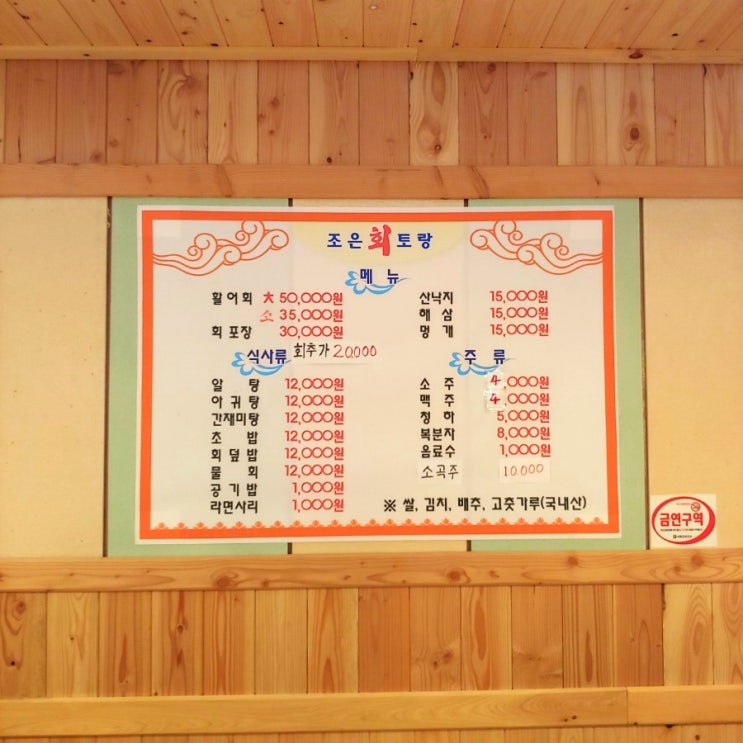 조은회토랑
메 뉴
활어회 大 50,000원
소 35,000원
회 포장 30,000원
회추가 20,000
산낙지 15,000원
해 삼 15,000원
멍 게 15,000원
식사류
알 탕 12,000원
아 귀 탕 12,000원
간재미탕 12,000원
초 밥 12,000원
회 덮 밥 12,000원
물 회 12,000원
공 기 밥 1,000원
라면사리 1,000원
주 류
소 주 4,000원
맥 주 4,000원
청 하 5,000원
복분자 8,000원
음료수 1,000원
소곡주 10,000
※ 쌀, 김치, 배추, 고춧가루(국내산)
금연구역